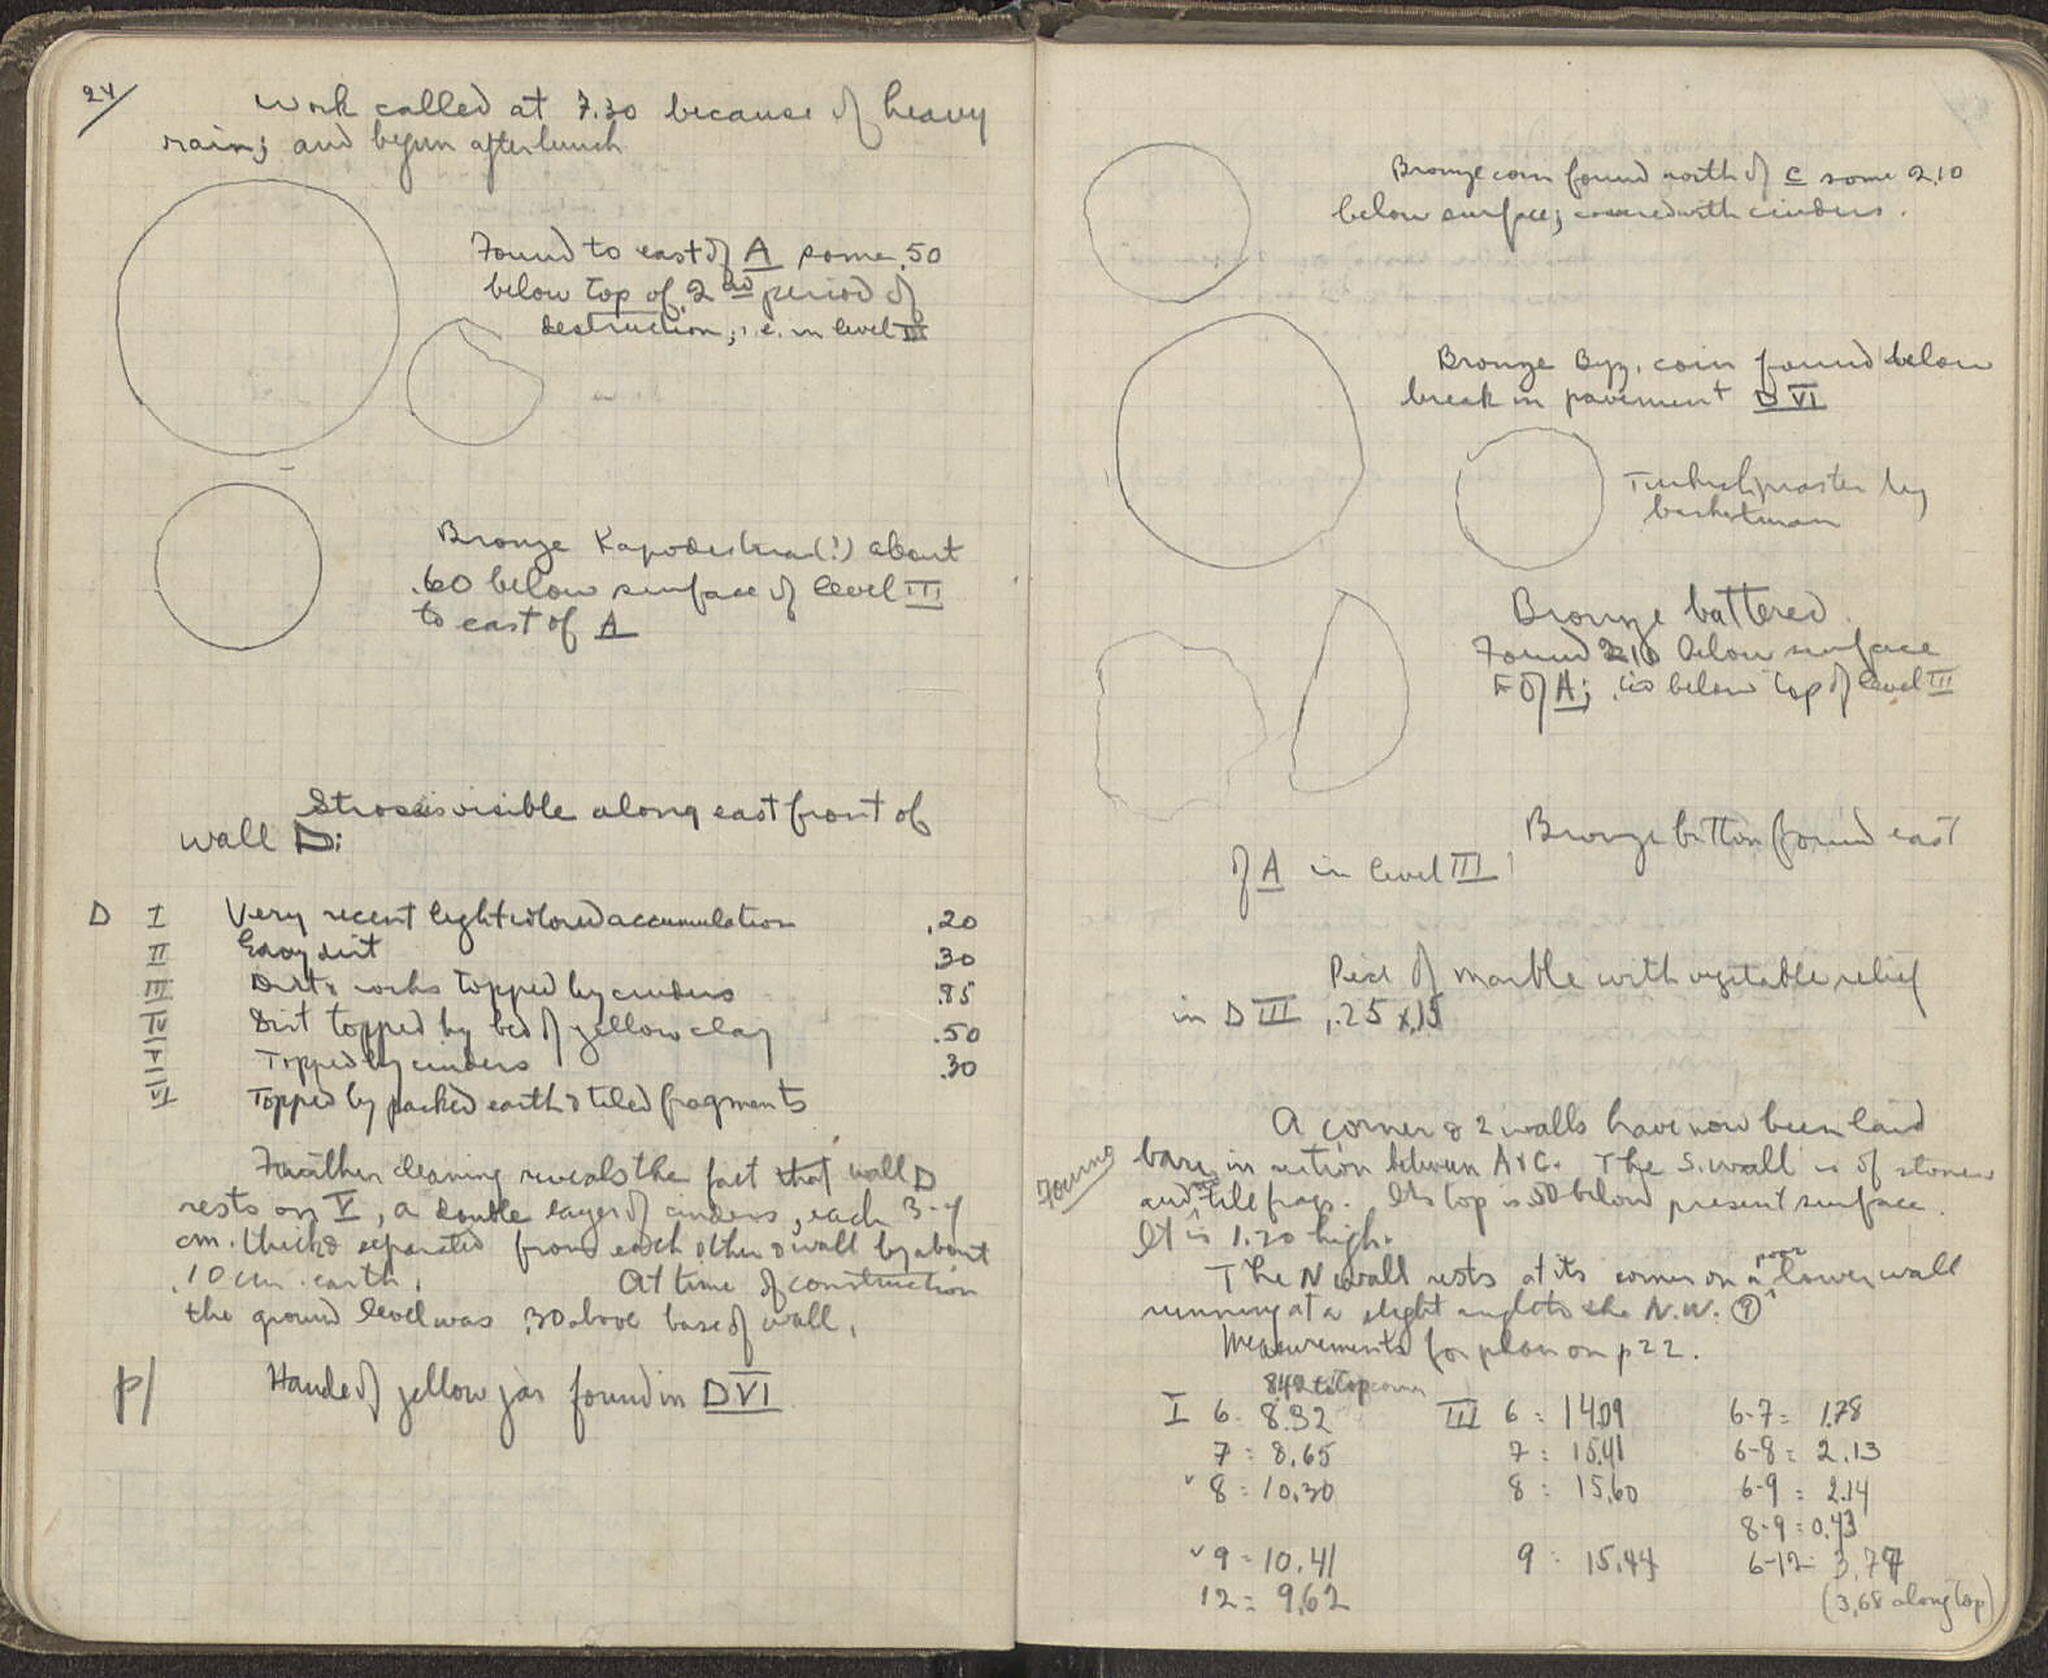 24/
Work called at 7.30 because of heavy
rain; and begun after lunch
Found to east of A some .50
below top of 2nd period of
destruction; i.e. in level III
Bronze (?) about
.60 below surface of level III
to east of A
Stroses visible along east front of
wall D:
D I Very recent light colored accumulation .20
II dirt .30
III Dirt & rocks topped by cinders .85
IV Dirt topped by bed of yellow clay .50
V Topped by cinders .30
VI Topped by packed earth & tiled fragments
Further cleaning reveals the fact that wall D
rests on V, a double layer of cinders, each 3-4
cm. thick & separated from each other & wall by about
.10 cm. earth. At time of construction
the ground level was .30 above base of wall.
p/ Handle of yellow jar found in DVI
Bronze coin found north of C some 2.10
below surface; covered with cinders.
Bronze Byz. coin found below
break in pavement D VI
Turkish by
basketman
Bronze battered.
Found 2.10 below surface
E of A; below top of level III
Bronze button found east
of A in level III
Piece of marble with vegetable relief
in D III, .25 x .15
A corner & 2 walls have now been laid
bare in section between A & C. The S. wall is of stones
and tile frags. Its top is .50 below present surface.
It is 1.20 high.
The N wall rests at its corner on a poor lower wall
running at a slight angle to the N.W. 9
Measurements for plan on p 22.
8.42 to top corner
I 6 - 8.32 III 6 = 14.09 6-7 = 1.78
7 = 8.65 7 = 15.41 6-8 = 2.13
v 8 = 10.30 8 = 15.60 6-9 = 2.14
8-9 = 0.43
v 9 = 10.41 9 = 15.44 6-12 =
12 = 9.62 (3.68 along top)